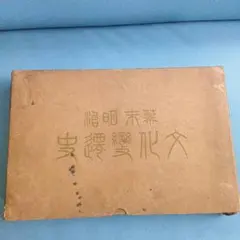 幕末 明治
文化變遷史